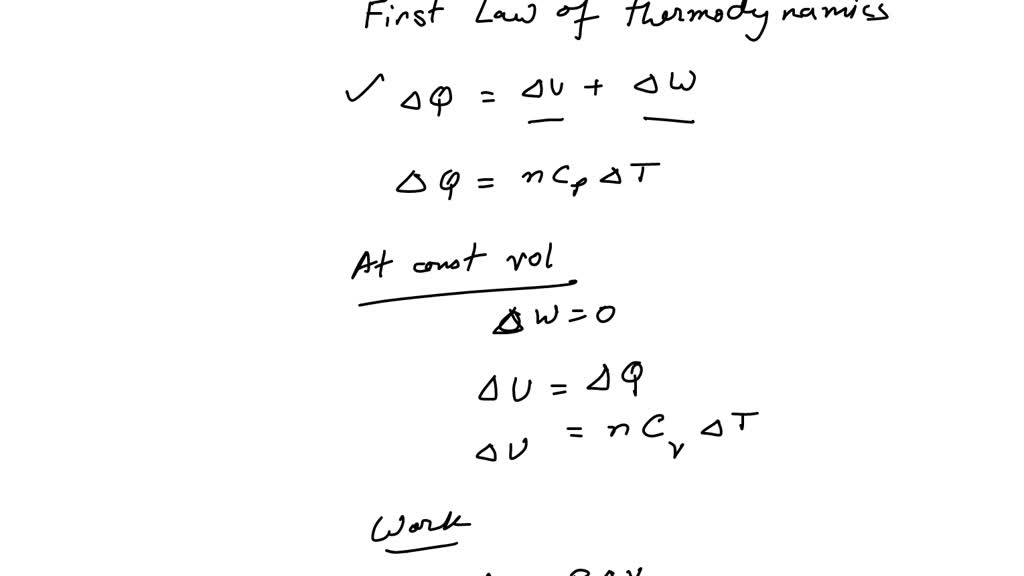 First Law of thermodynamiss
✓ ΔQ = ΔU + ΔW
ΔQ = nCpΔT
At const vol
ΔW = 0
ΔU = ΔQ
ΔU = nCvΔT
Work